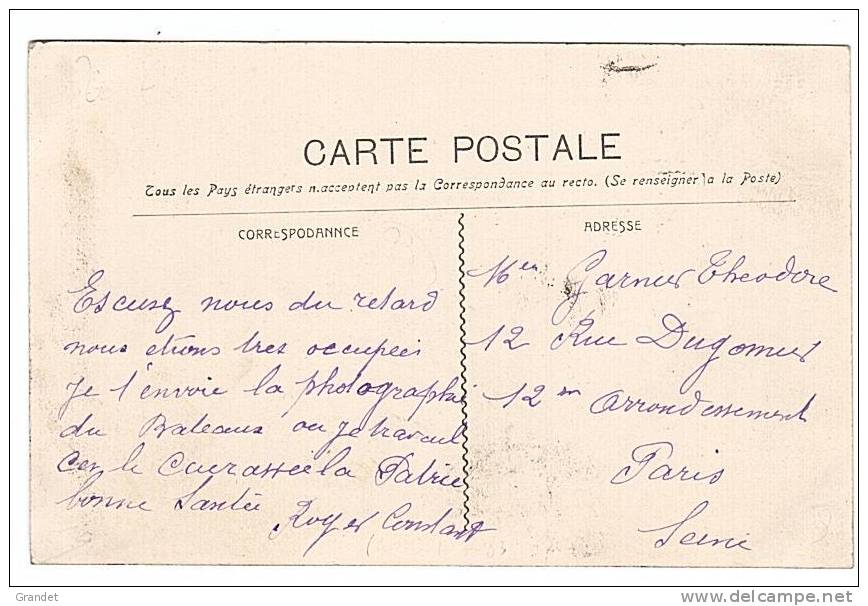 CARTE POSTALE
Tous les Pays étrangers n.acceptent pas la Correspondance au recto. (Se renseigner a la Poste)
CORRESPODANNCE
Escusez nous du retard
nous etions tres occupeés
Je t'envoie la photographie
du Bateaux ou je travail
le Cuirassée la Patrie
bonne Santée
Roger Constant
ADRESSE
Garnier Theodore
12 Rue Dugomier
12 em Arrondessement
Paris
Seine
Grandet
http://www.delcampe.net